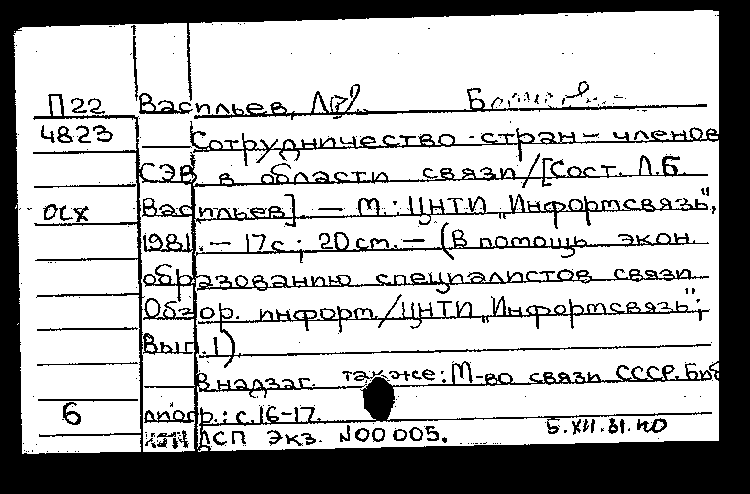 П22 Васильев, Л.Б.
4823 Сотрудничество стран – членов
СЭВ в области связи/[Сост. Л.Б.
осх Васильев]. – М.: ЦНТИ „Информсвязь",
1981. – 17 с.; 20 см. – (В помощь экон.
образованию специалистов связи.
Обзор. информ./ЦНТИ „Информсвязь";
Вып. 1)
В надзаг. также: М-во связи СССР. Биб
6 лиогр.: с. 16–17.
ДСП Экз. N00005. Б.XII.81.НО